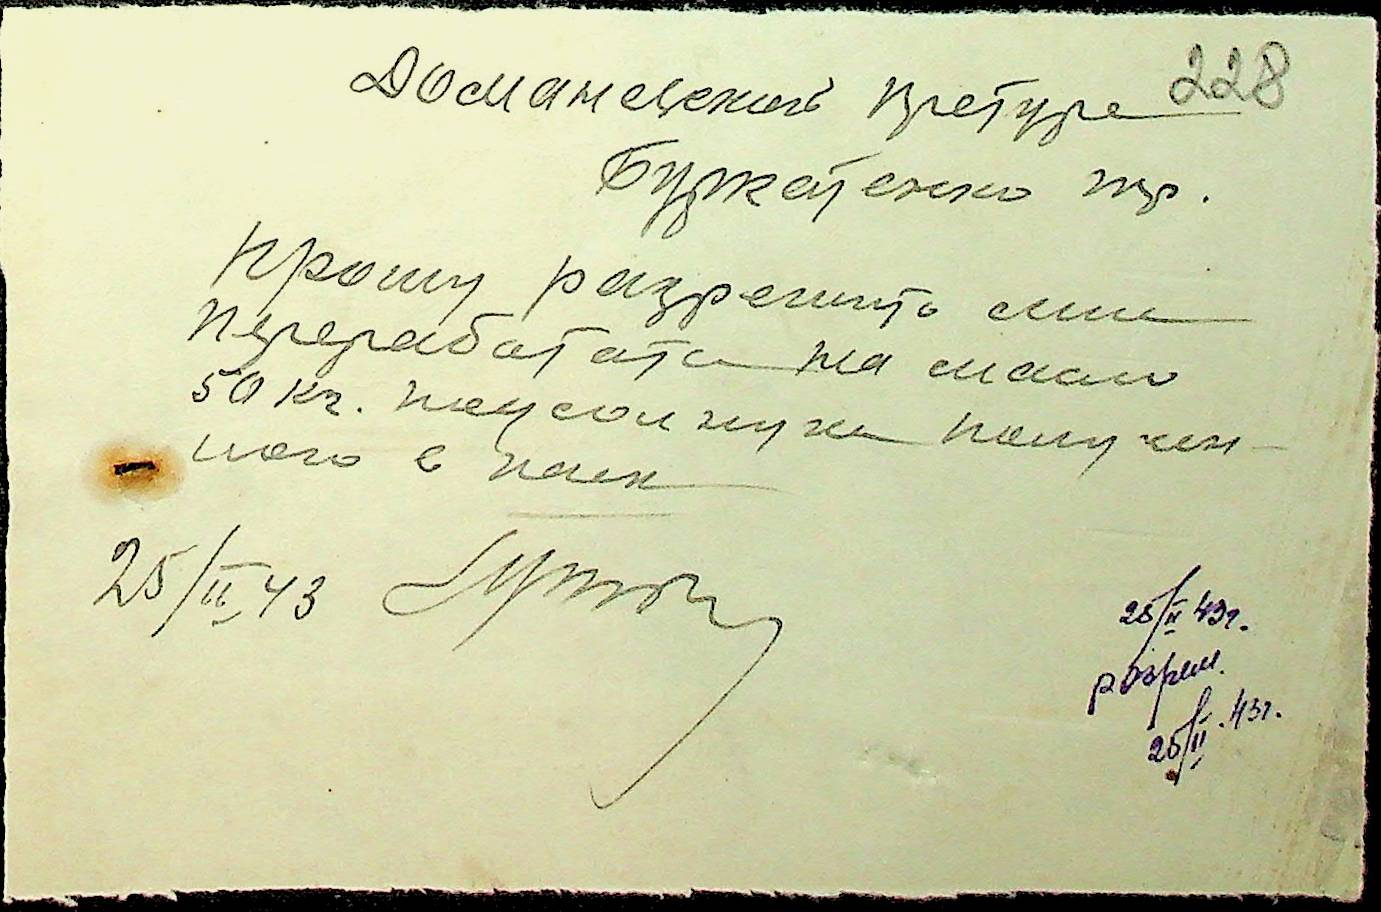 228
Доманевской претуре
Буркатенко пр.
Прошу разрешить мне
переработать на масло
50 кг. подсолнуха получен-
ного в паек
25/II 43
25/II 43г.
разреш.
25/II.43г.